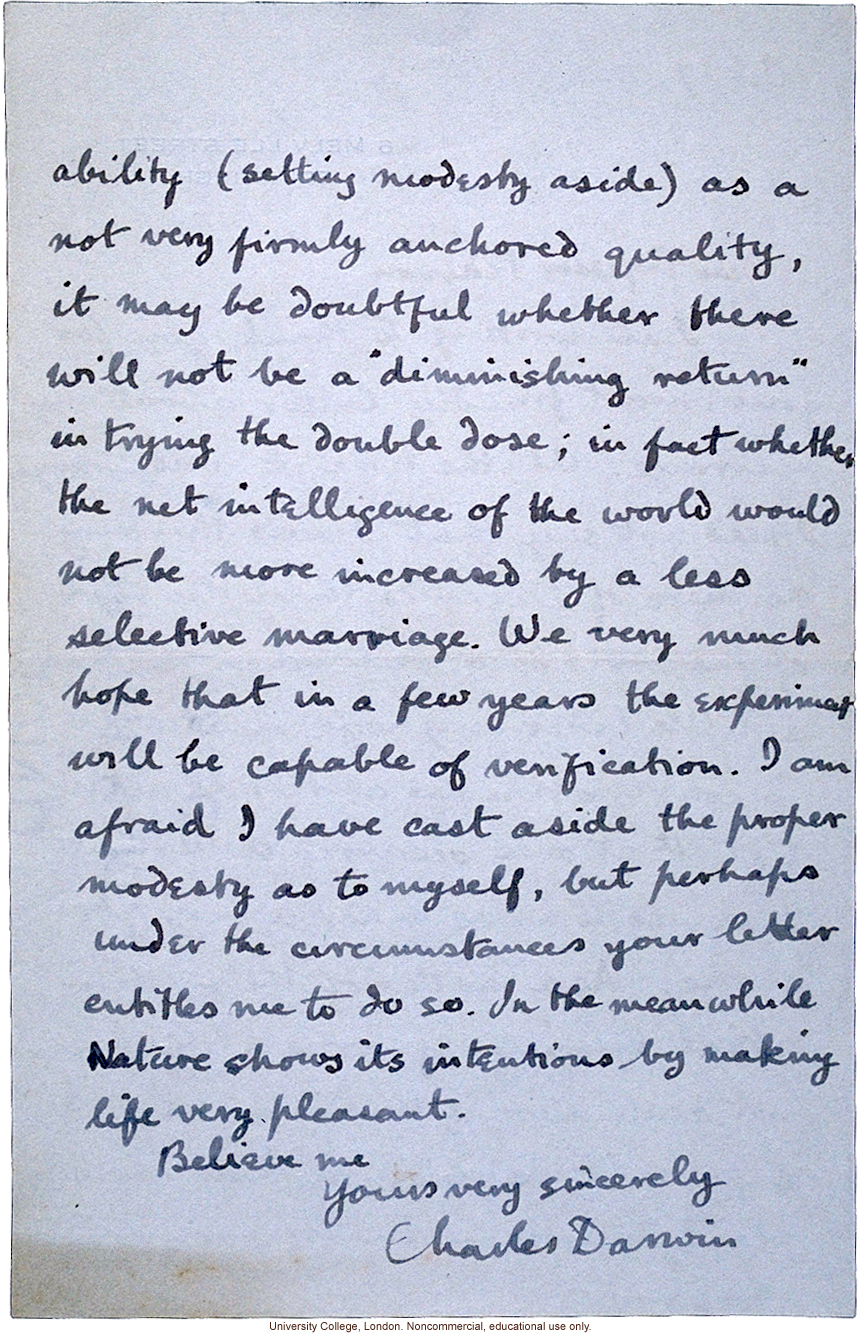 ability (setting modesty aside) as a
not very firmly anchored quality,
it may be doubtful whether there
will not be a "diminishing return"
in trying the double dose; in fact whether
the net intelligence of the world would
not be more increased by a less
selective marriage. We very much
hope that in a few years the experiment
will be capable of verification. I am
afraid I have cast aside the proper
modesty as to myself, but perhaps
under the circumstances your letter
entitles me to do so. In the meanwhile
Nature shows its intentions by making
life very pleasant.
Believe me
Yours very sincerely
Charles Darwin
University College, London. Noncommercial, educational use only.